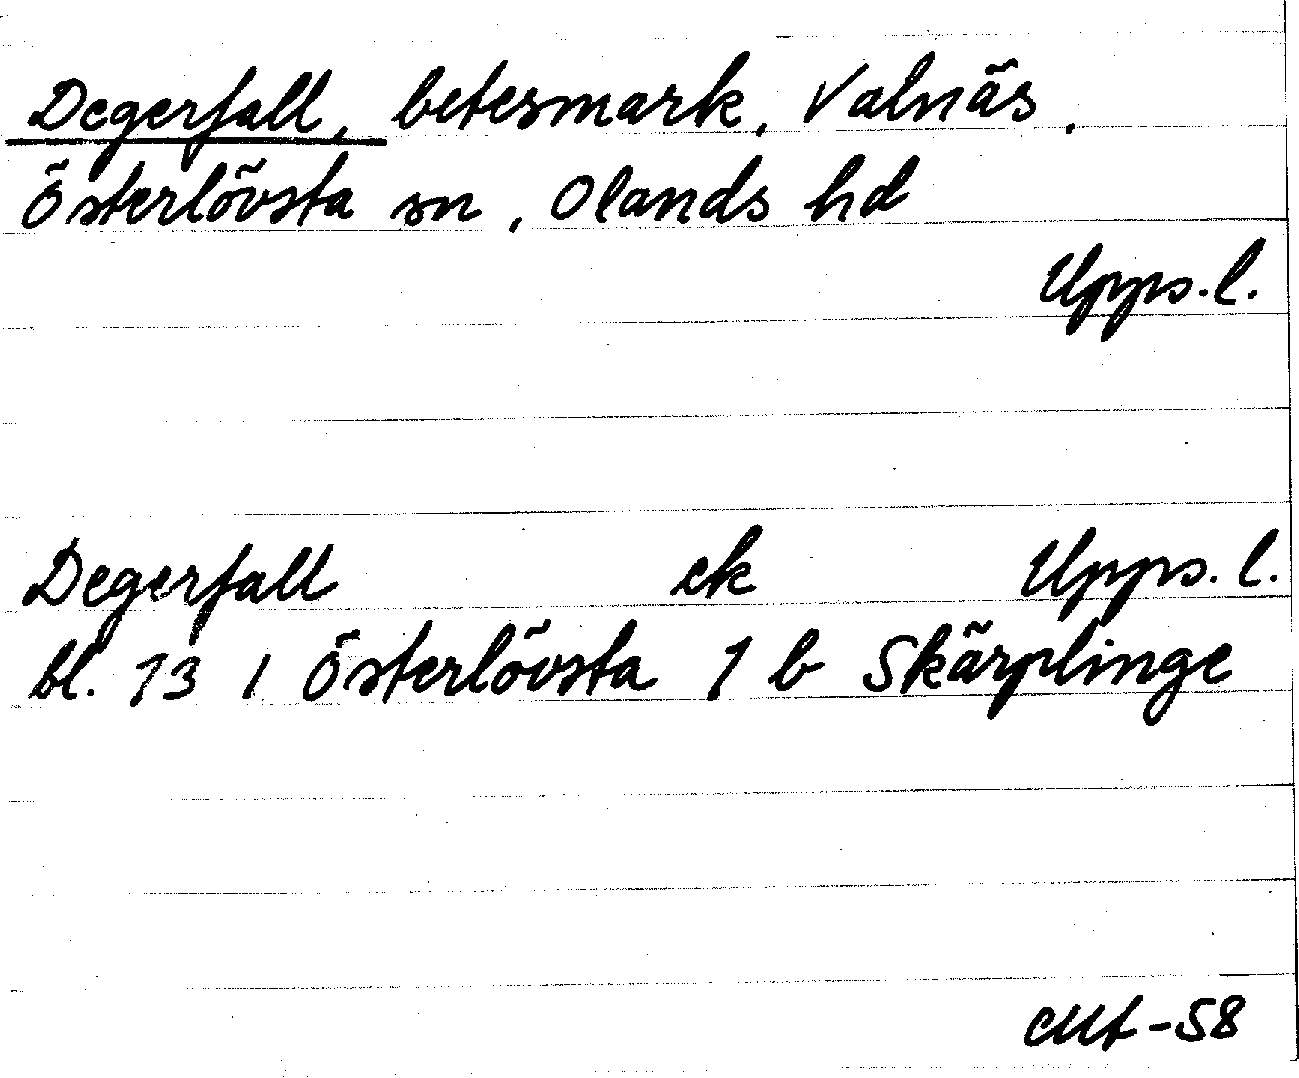 Degerfall, betesmark, Valnäs,
Österlövsta sn, Olands hd
Upps.l.
Degerfall ek Upps.l.
bl. 13 I Österlövsta 1 b Skärplinge
-58